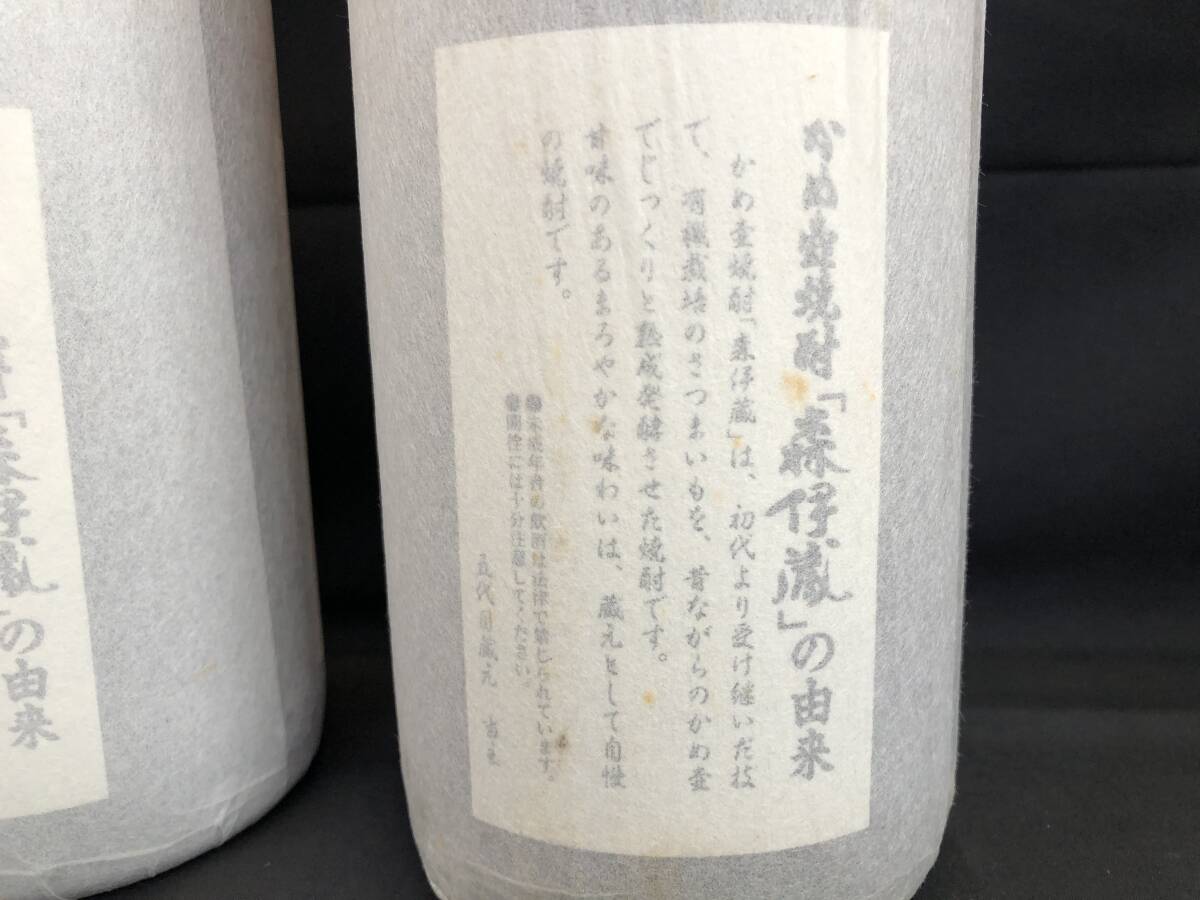 かめ壺焼酎「森伊蔵」の由来
かめ壺焼酎「森伊蔵」は、初代より受け継いだ技
で、有機栽培のさつまいもを、昔ながらのかめ壺
でじっくりと熟成発酵させた焼酎です。
甘味のあるまろやかな味わいは、蔵元として自慢
の焼酎です。
●未成年者の飲酒は法律で禁じられています。
●開栓には十分注意してください。
五代目蔵元
「森伊蔵」の由来